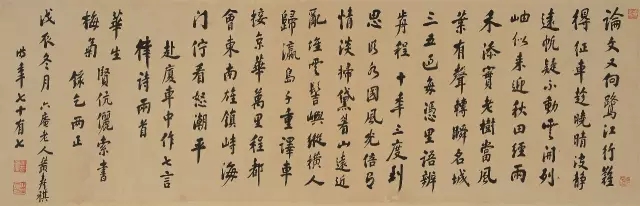 論文又向鷺江行難
得征車趁曉晴浪靜
遠帆疑不動雲開列
岫似來迎秋田經雨
禾添實老樹當風
葉有聲轉瞬名城
三五過每憑里語辨
前程 十年三度到
思明水國風光倍有
情淡掃黛眉山遠近
亂堆雲髻嶼縱橫人
歸瀛島千重譯車
接京華萬里程都
會東南雄鎮峙海
門佇看怒潮平
赴廈車中作七言
律詩兩首
華生
梅菊 賢伉儷索書
錄乞兩正
戊辰冬月六庵老人黃壽祺
時年七十有七